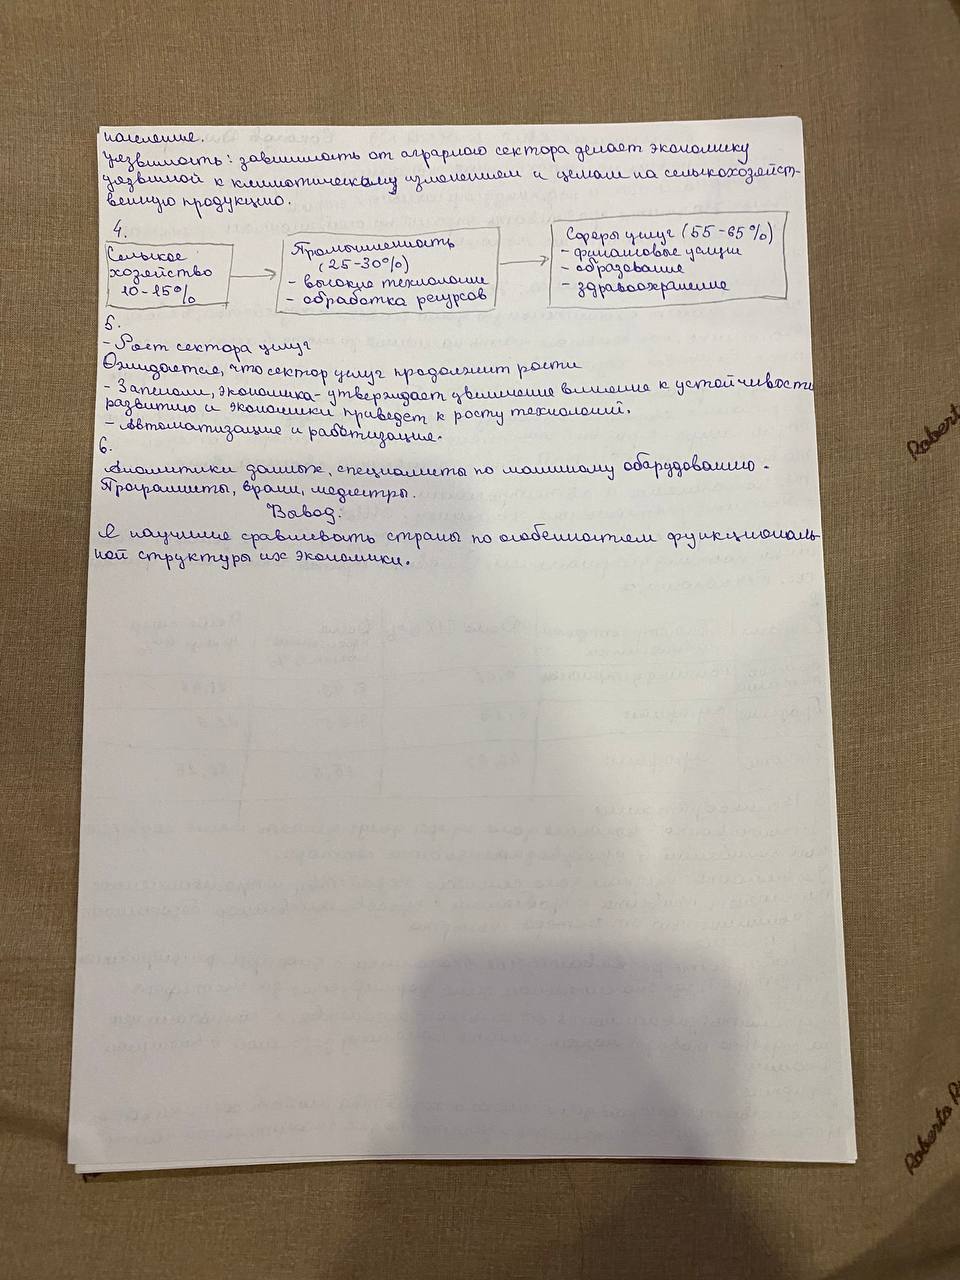 население.
уязвимость: зависимость от аграрного сектора делает экономику
уязвимой к климатическим изменениям и ценам на сельскохозяйст-
венную продукцию.
4.
Сельское
хозяйство
10-15%
Промышленность
(25-30%)
- высокие технологии
- обработка ресурсов
Сферы услуг (55-65%)
- финансовые услуги
- образование
- здравоохранение
5.
- Рост сектора услуг
Ожидается, что сектор услуг продолжит рости
- экономика - утверждает увеличение влияние к устойчивости
развитию и экономики приведет к росту технологий.
- Автоматизация и работизация.
6.
Аналитики данных, специалисты по машинному обарудованию.
Программисты, врачи, медсестры.
Вывод.
Я научился сравнивать страны по особенностям функциональ-
ной структуры их экономики.
Roberto
Roberto R